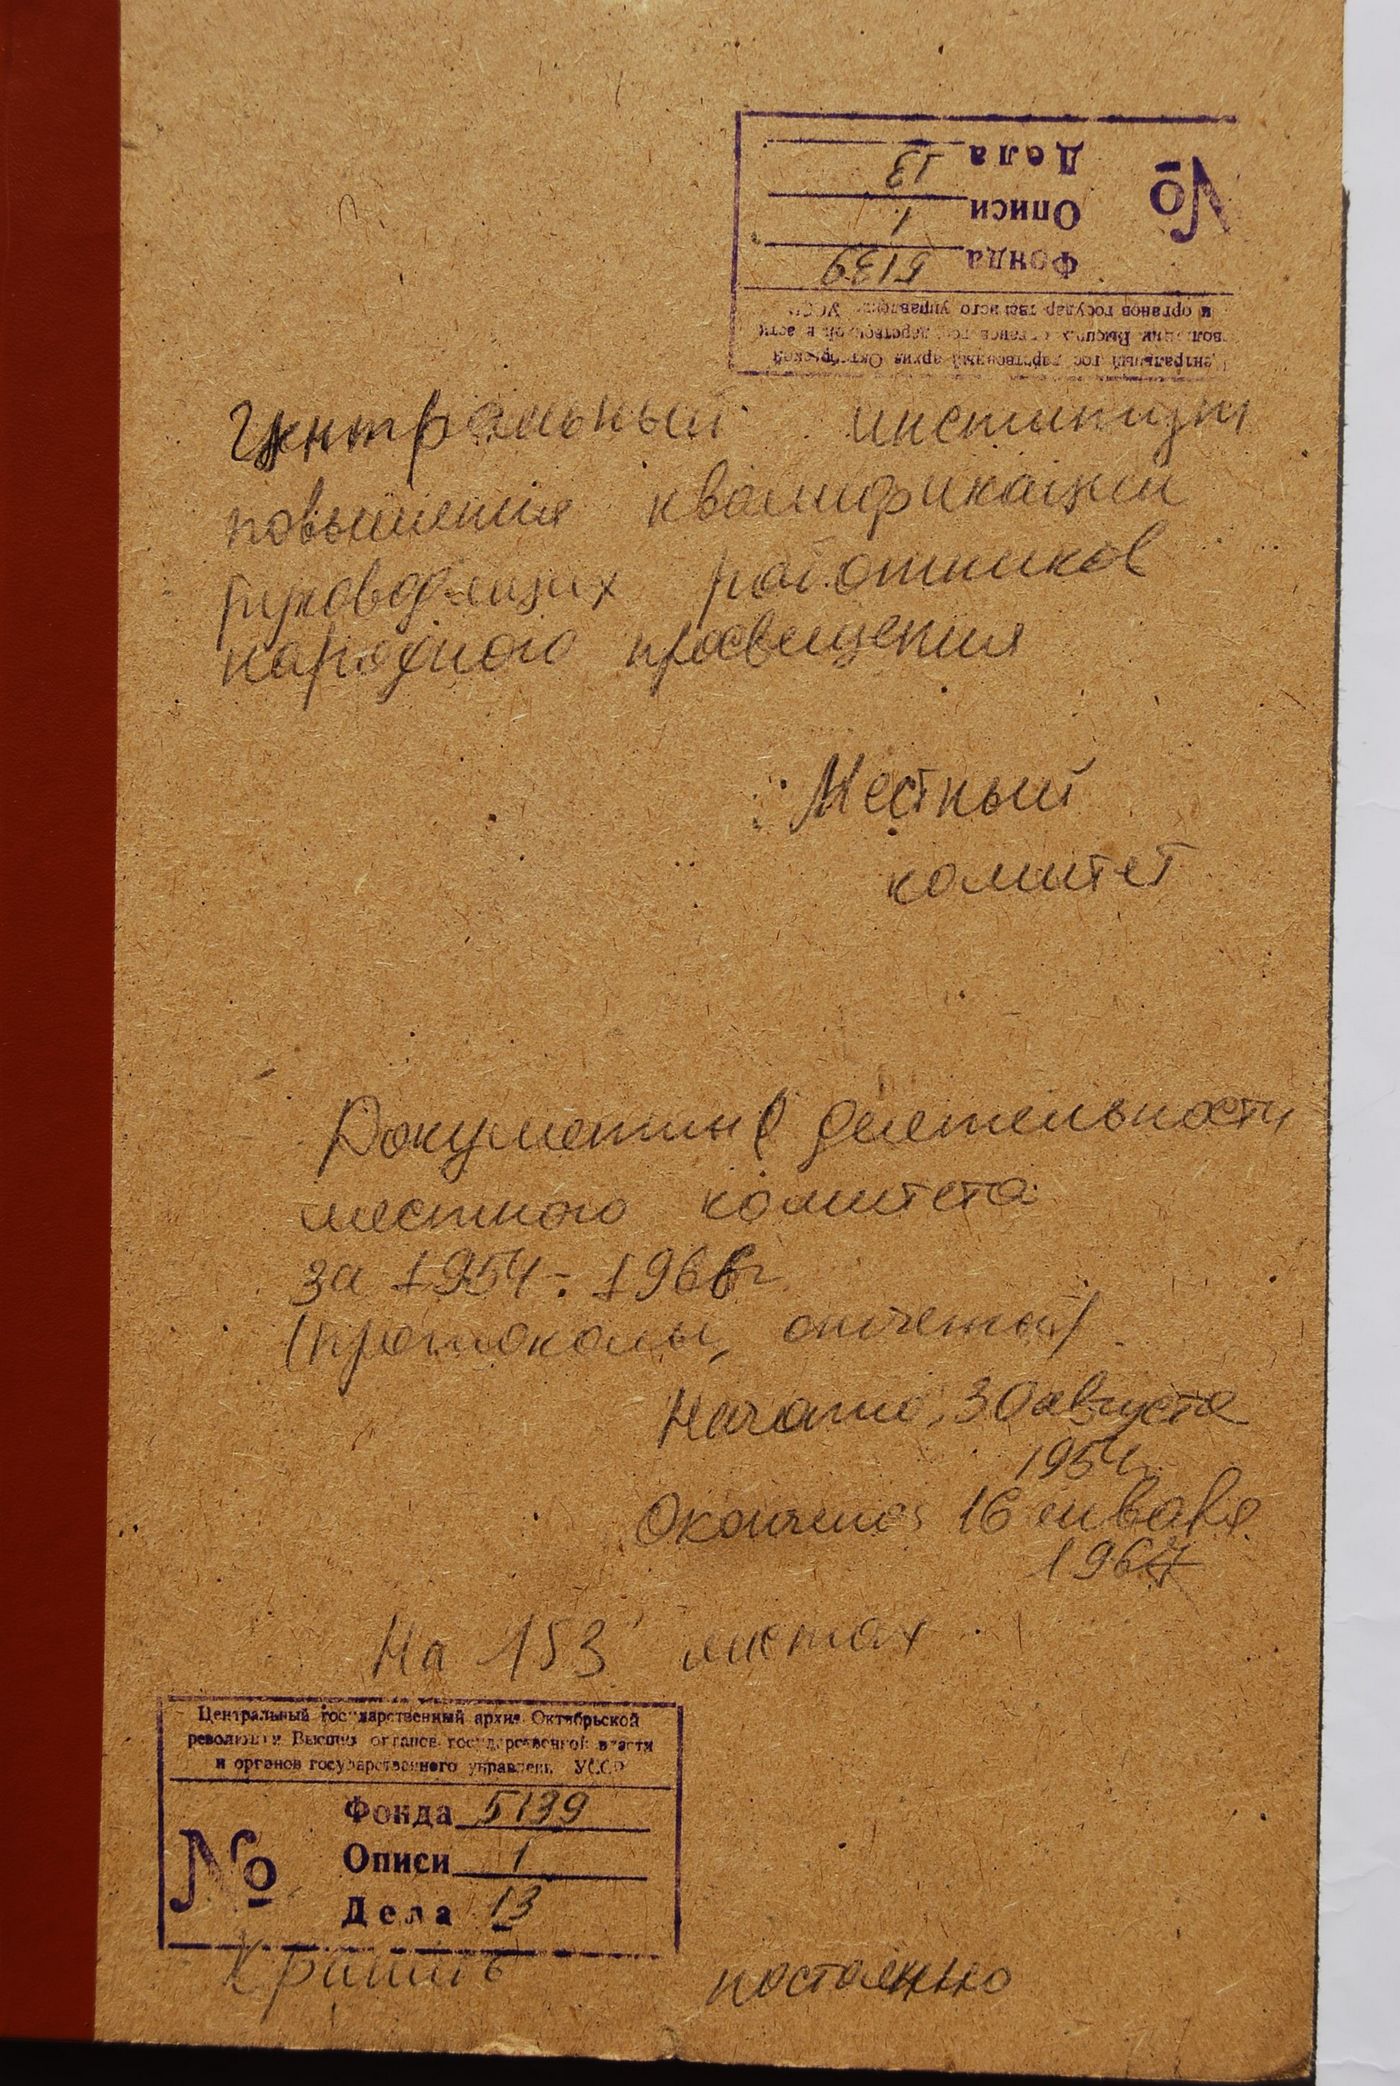 Центральный государственный архив Октябрьской
революции Высших органов государственной власти
и органов государственного управлен. УССР
№
Фонда 5139
Описи 1
Дела 13
Центральный институт
повышения квалификации
руководящих работников
народного просвещения
Местный
комитет
Документы деятельности
местного комитета
за 1954-1966г
(протоколы, отчеты)
Начато: 30 августа
1954г
Окончено: 16 января
1967
На 153 листах
Центральный государственный архив Октябрьской
революции Высших органов государственной власти
и органов государственного управлен. УССР
№
Фонда 5139
Описи 1
Дела 13
Хранить постоянно